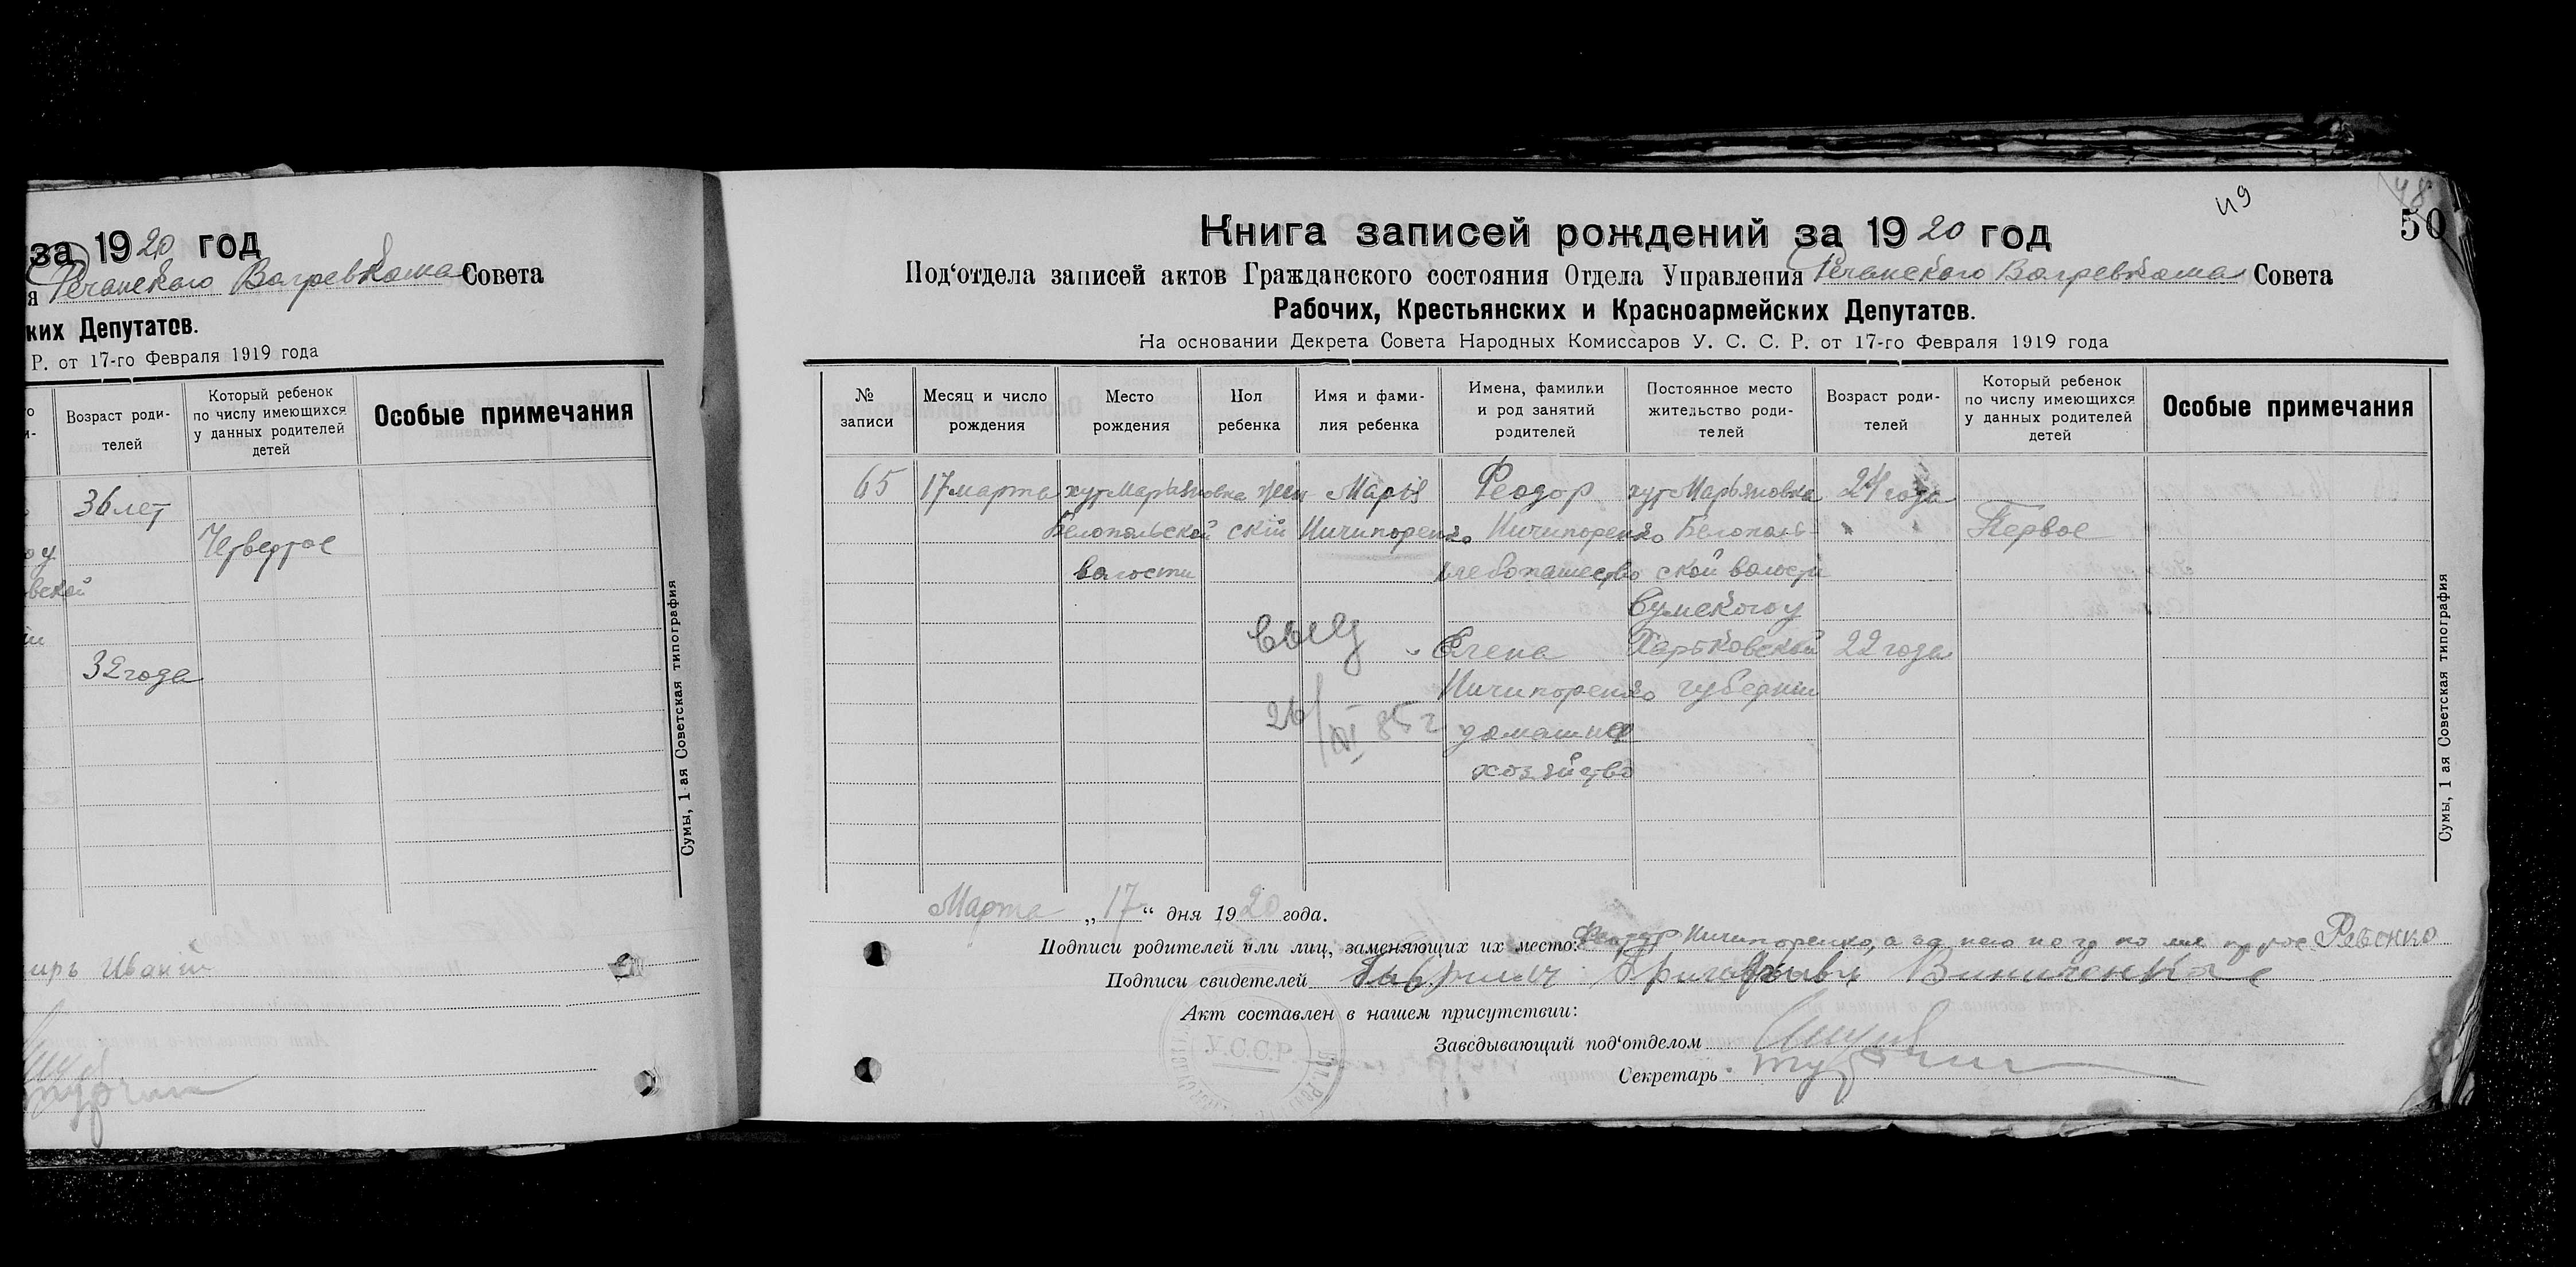 за 1920 год
я Речанского Волревкома Совета
ких Депутатов.
Р. от 17-го Февраля 1919 года
Возраст роди-
телей
Который ребенок
по числу имеющихся
у данных родителей
детей
Особые примечания
36 лет
Четвертое
вской
32 года
Сумы, 1-ая Советская типография
49
48
50
Книга записей рождений за 1920 год
Под‘отдела записей актов Гражданского состояния Отдела Управления Речанского Волревкома Совета
Рабочих, Крестьянских и Красноармейских Депутатов.
На основании Декрета Совета Народных Комиссаров У. С. С. Р. от 17-го Февраля 1919 года
№
записи
Месяц и число
рождения
Место
рождения
Пол
ребенка
Имя и фами-
лия ребенка
Имена, фамилии
и род занятий
родителей
Постоянное место
жительство роди-
телей
Возраст роди-
телей
Который ребенок
по числу имеющихся
у данных родителей
детей
Особые примечания
65 17 марта хут Марьяновка жен Марія Феодор хут Марьяновка 24 года
Белопольской скій Ничипоренко Ничипоренко Белополь- Первое
волости хлебопашество ской волости
Сумского у
Елена Харьковской 22 года
Ничипоренко губернии
26/XI 85 г домашнее
хозяйство
Сумы, 1 ая Советская типография
Марта „17“ дня 1920 года.
Подписи родителей или лиц, заменяющих их место: Феодор Ничипоренко, а Рябенко
Подписи свидетелей Винниченко
Акт составлен в нашем присутствии:
У.С.С.Р.
Заведывающий под‘отделом
Секретарь